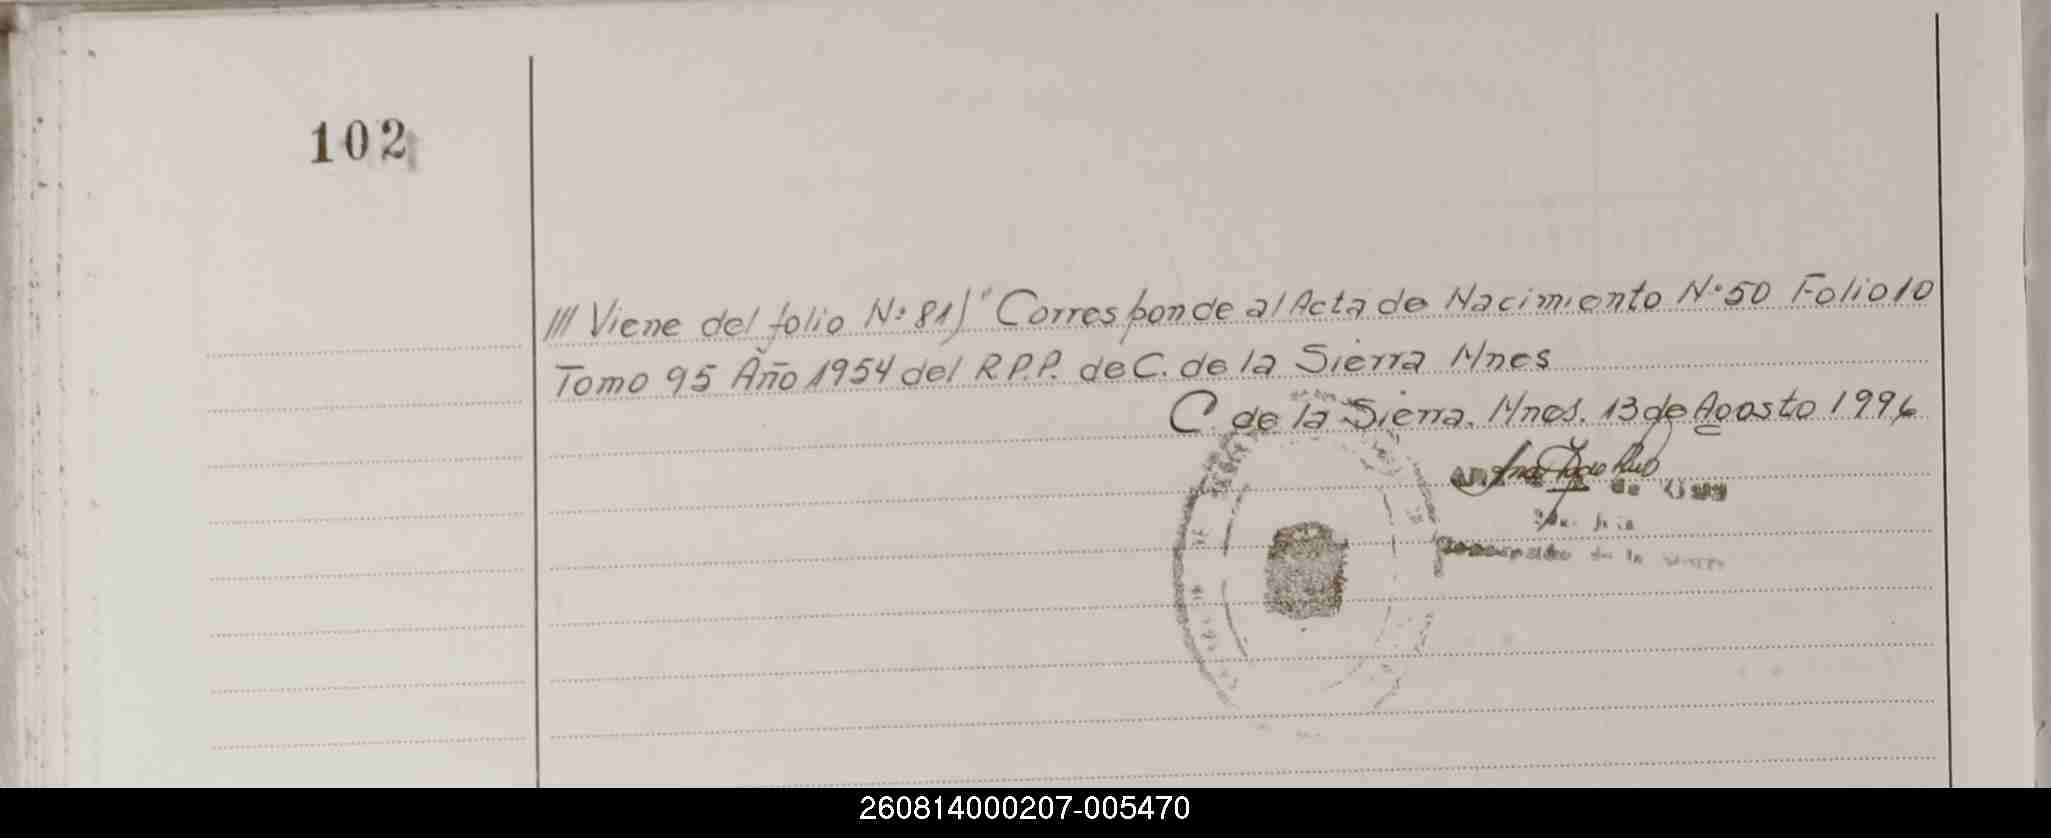 102
/// Viene del folio Nº 81) "Corresponde al Acta de Nacimiento Nº 50 Folio 10
Tomo 95 Año 1954 del R.P.P. de C. de la Sierra Mnes
C. de la Sierra. Mnes. 13 de Agosto 1996
de la
260814000207-005470